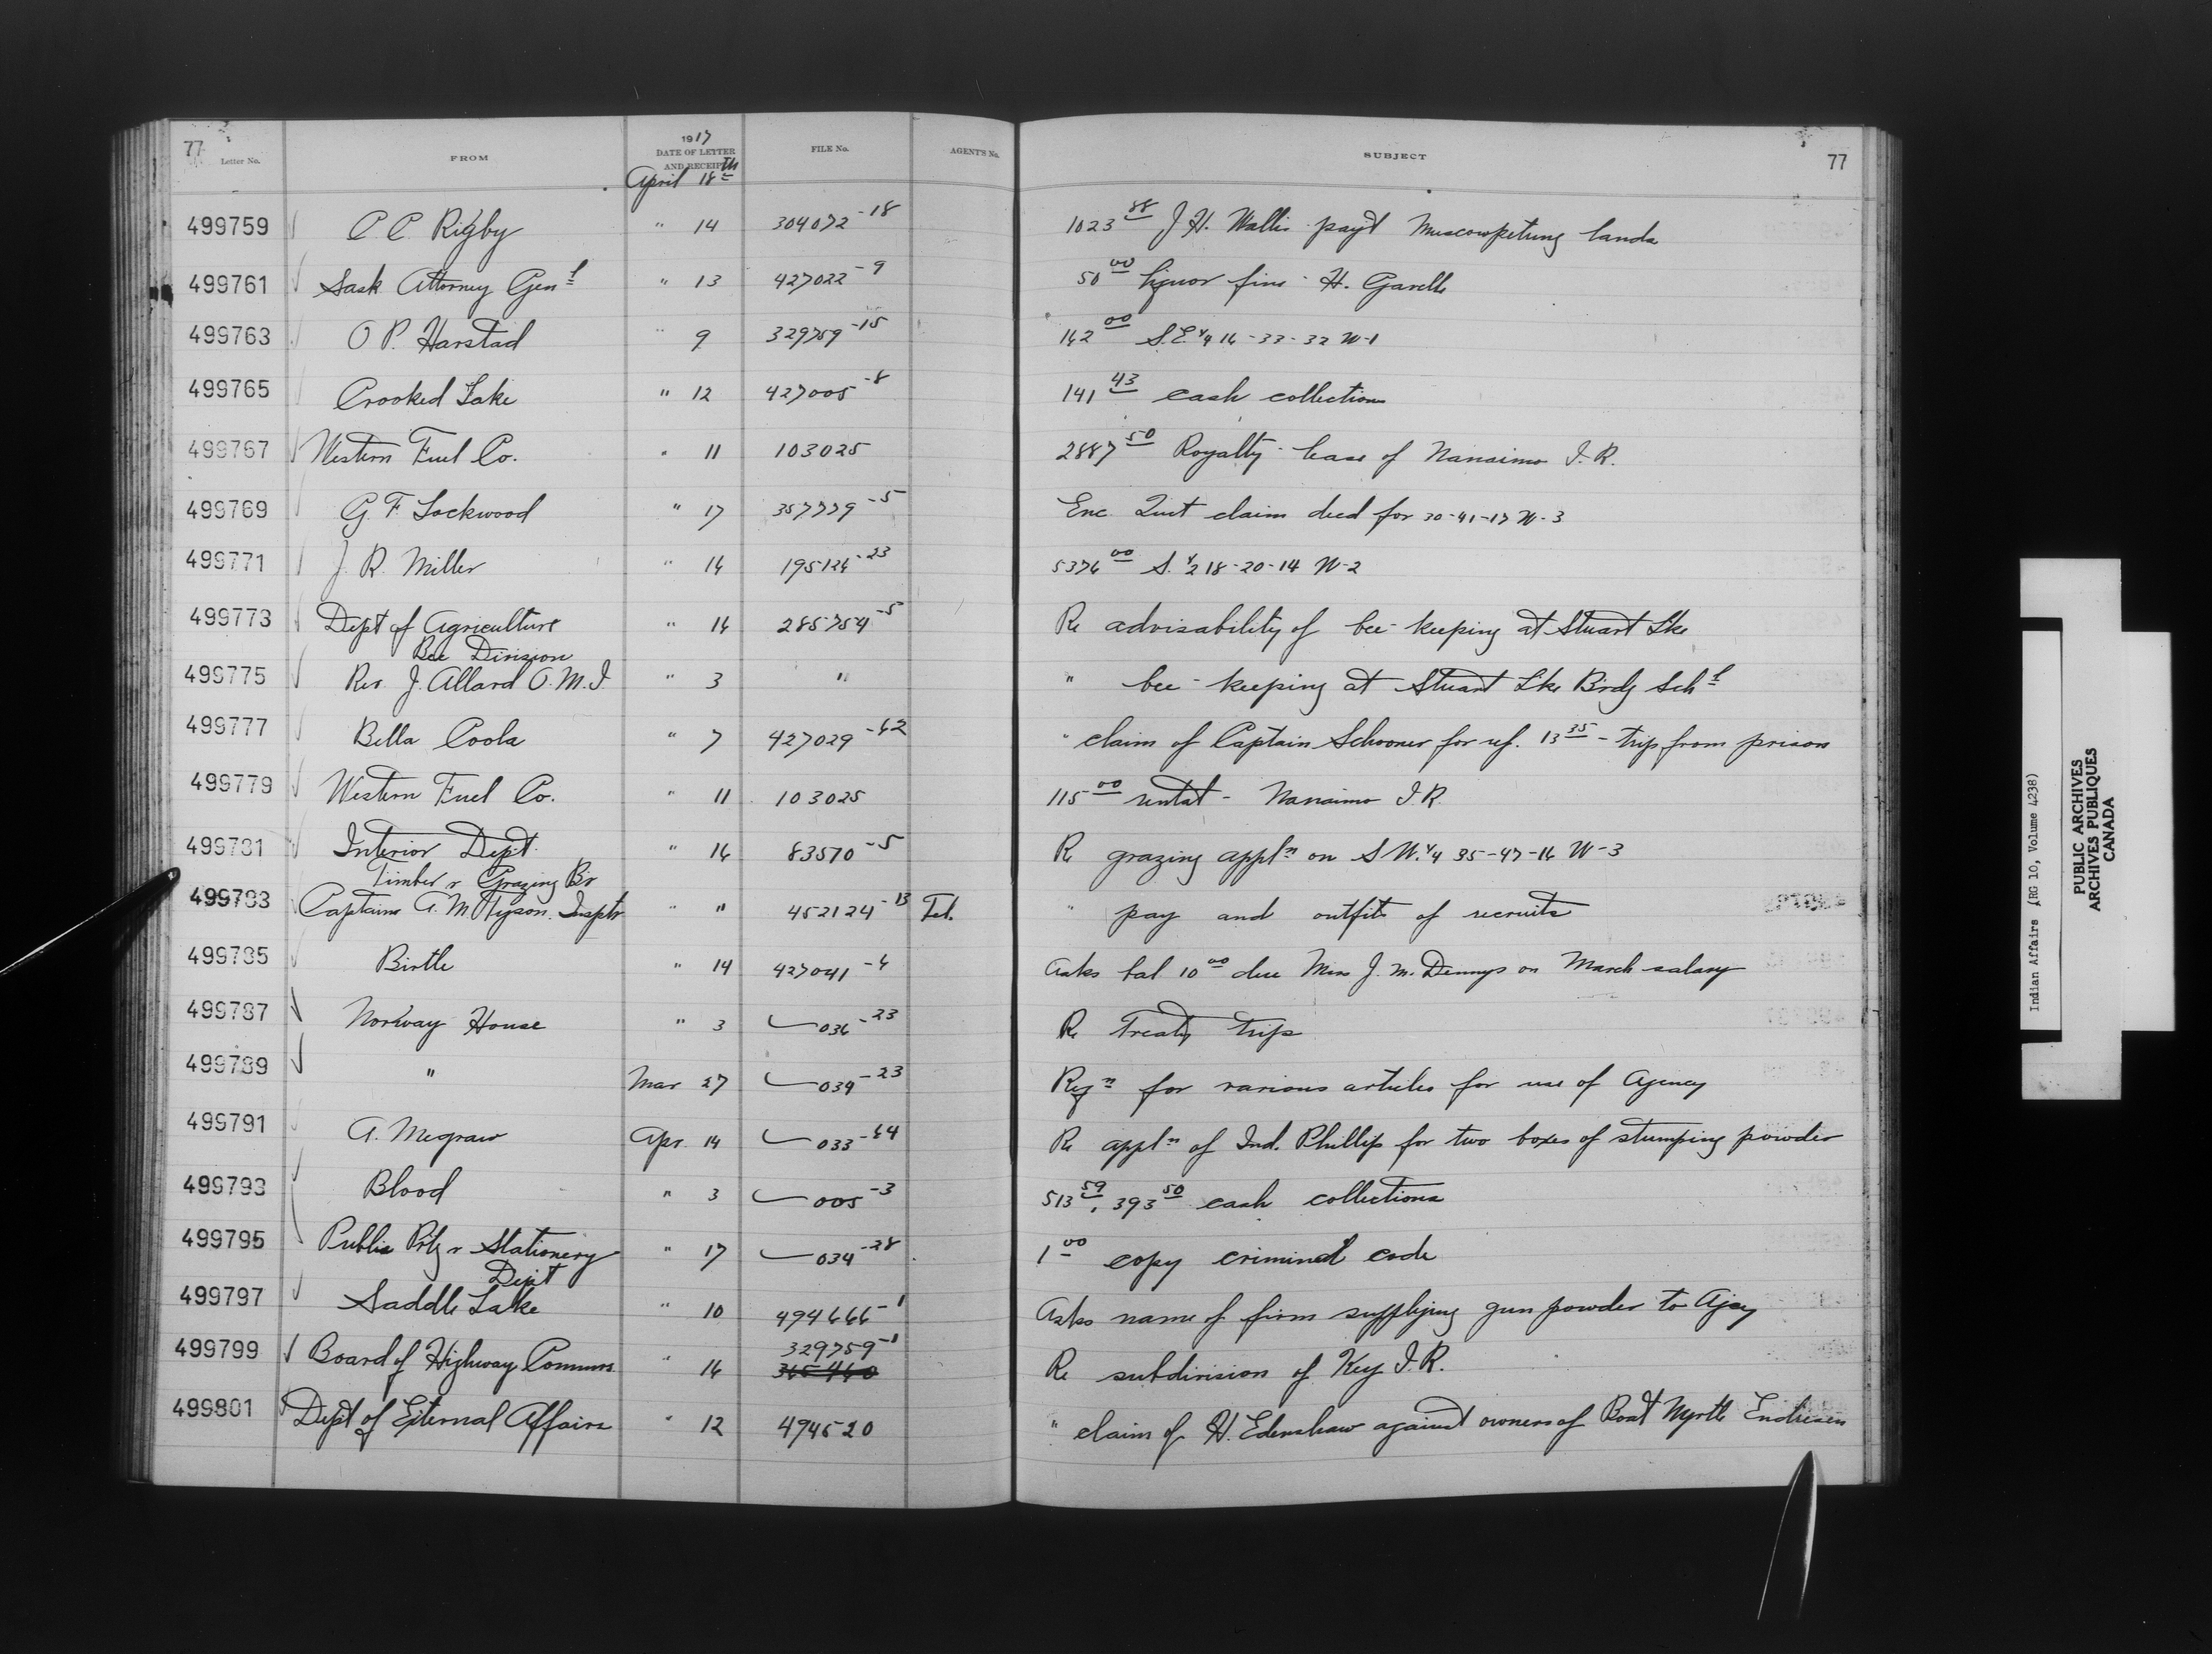 77 Letter No. FROM 1917 DATE OF LETTER AND RECEIPT FILE No. AGENT'S No. SUBJECT 77
April 18th
499759 C. C. Rigby " 14 304072-18 1023 88 J. H. Wallis pay't Muscowpetung lands
499761 Sask Attorney Gen'l " 13 427022-9 50 00 liquor fine - H.
499763 O P. Harstad " 9 329759-15 162 00 S.E. 1/4 16-33-32 W-1
499765 Crooked Lake " 12 427005-8 141 43 cash collections
499767 Western Fuel Co. " 11 103025 2887 50 Royalty - lease of Nanaimo I.R.
499769 G. F. Lockwood " 17 357779-5 Enc. Quit claim deed for 30-41-17 W-3
499771 J. R. Miller " 16 195126-23 5376 00 S. 1/2 18-20-14 W-2
499773 Dept of Agriculture " 16 285754-5 Re advisability of bee-keeping at Stuart Lke
Bee Division
499775 Rev. J. Allard O.M.I. " 3 " " bee-keeping at Stuart Lke Brdg Sch'l
499777 Bella Coola " 7 427029-62 " claim of Captain Schooner for ref. 13 35 - trip from prison
499779 Western Fuel Co. " 11 103025 115 00 rental - Nanaimo I.R.
499781 Interior Dept. " 16 83570-5 Re grazing appl'n on S.W. 1/4 35-47-16 W-3
Timber & Grazing Br
499783 Captain A. M. Tyson. Insptr " " 452124-13 Tel. " pay and outfit of recruits
499785 Birtle " 14 427041-4 Asks bal 10 00 due Miss J. M. Dennys on March salary
499787 Norway House " 3 036-23 Re Treaty trips
499789 " Mar 27 039-23 Reqn for various articles for use of Agency
499791 A. Megraw Apr. 14 033-64 Re appl'n of Ind. Phillip for two boxes of stumping powder
499793 Blood " 3 005-3 513 59, 393 50 cash collections
499795 Public Ptg & Stationery " 17 034-28 1 00 copy criminal code
Dept
499797 Saddle Lake " 10 494666-1 Asks name of firm supplying gun powder to Agcy
329759-1
499799 Board of Highway Commrs " 16 365460 Re subdivision of Key I.R.
499801 Dept of External Affairs " 12 494520 " claim of H. Edenshaw against owners of Boat Myrtle Endresen
Indian Affairs (RG 10, Volume 4238)
PUBLIC ARCHIVES
ARCHIVES PUBLIQUES
CANADA